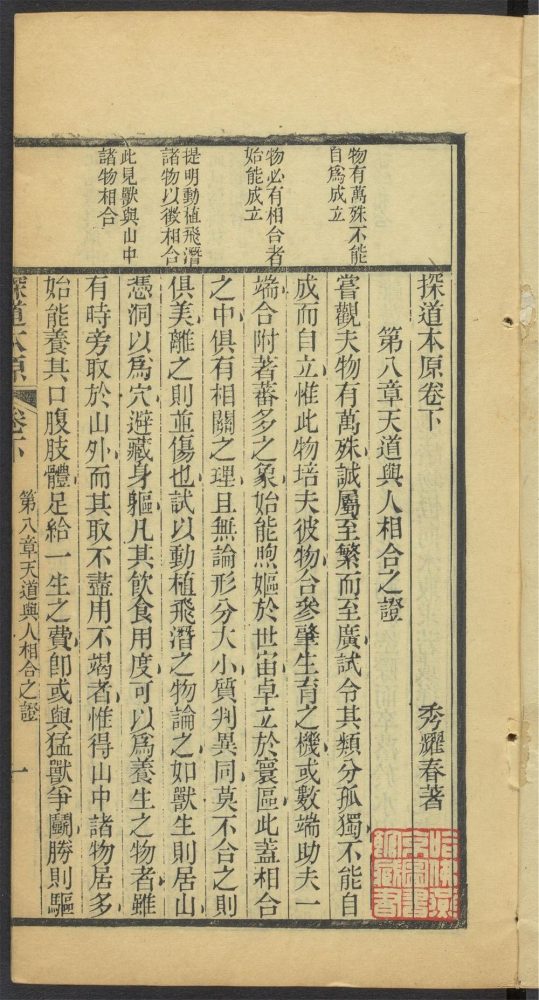 物有萬殊不能
自爲成立
物必有相合者
始能成立
提明動植飛潛
諸物以徵相合
此見獸與山中
諸物相合
探道本原卷下
秀耀春著
第八章天道與人相合之證
嘗觀夫物有萬殊誠屬至繁而至廣試令其類分孤獨不能自
成而自立惟此物培夫彼物台參肇生育之機或數端助夫一
端合附著蕃多之象始能煦嫗於世宙卓立於寰區此蓋相合
之中俱有相關之理且無論形分大小質判異同莫不合之則
俱美離之則並傷也試以動植飛潛之物論之如獸生則居山
憑洞以爲穴避藏身軀凡其飲食用度可以爲養生之物者雖
有時旁取於山外而其取不盡用不竭者惟得山中諸物居多
始能養其口腹肢體足給一生之費卽或與猛獸爭鬭勝則驅
探道本原
卷下
第八章天道與人相合之證
一